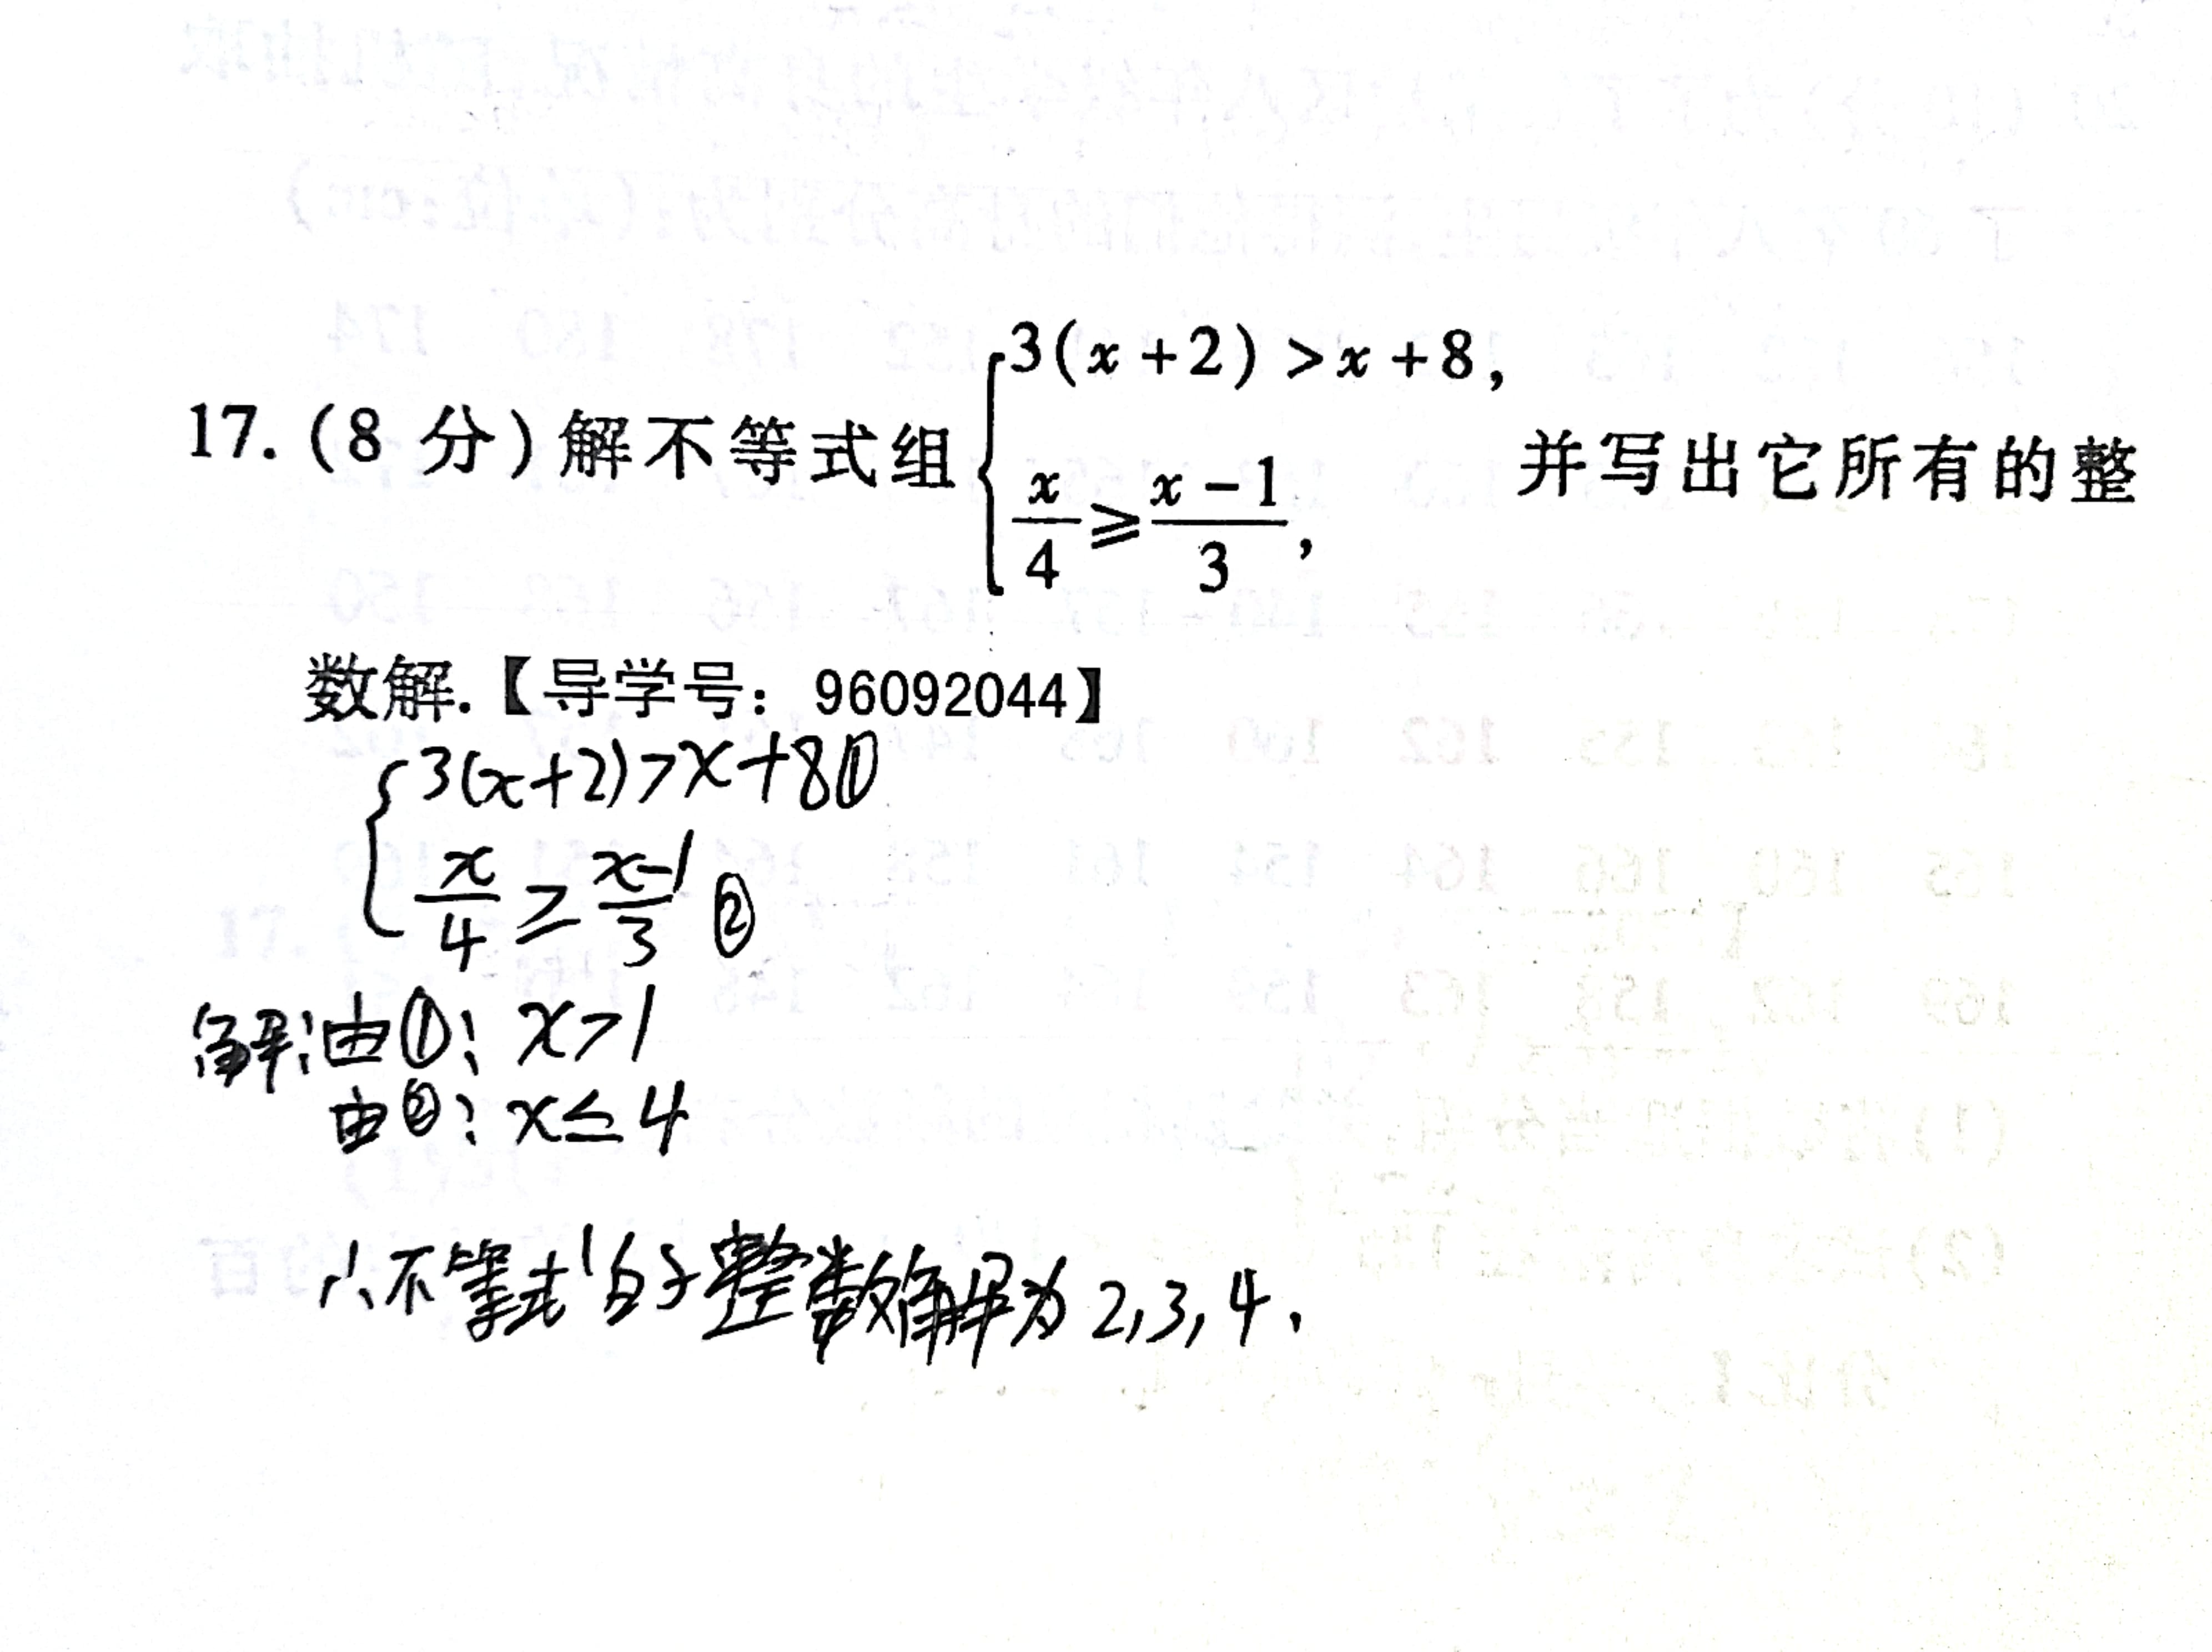 17. (8 分) 解不等式组 { 3(x+2) > x+8, x/4 ⩾ (x-1)/3, 并写出它所有的整
数解.【导学号: 96092044】
{ 3(x+2)>x+8①
x/4 ≥ (x-1)/3 ②
解:由①: x>1
由②: x≤4
∴不等式的整数解为2,3,4.